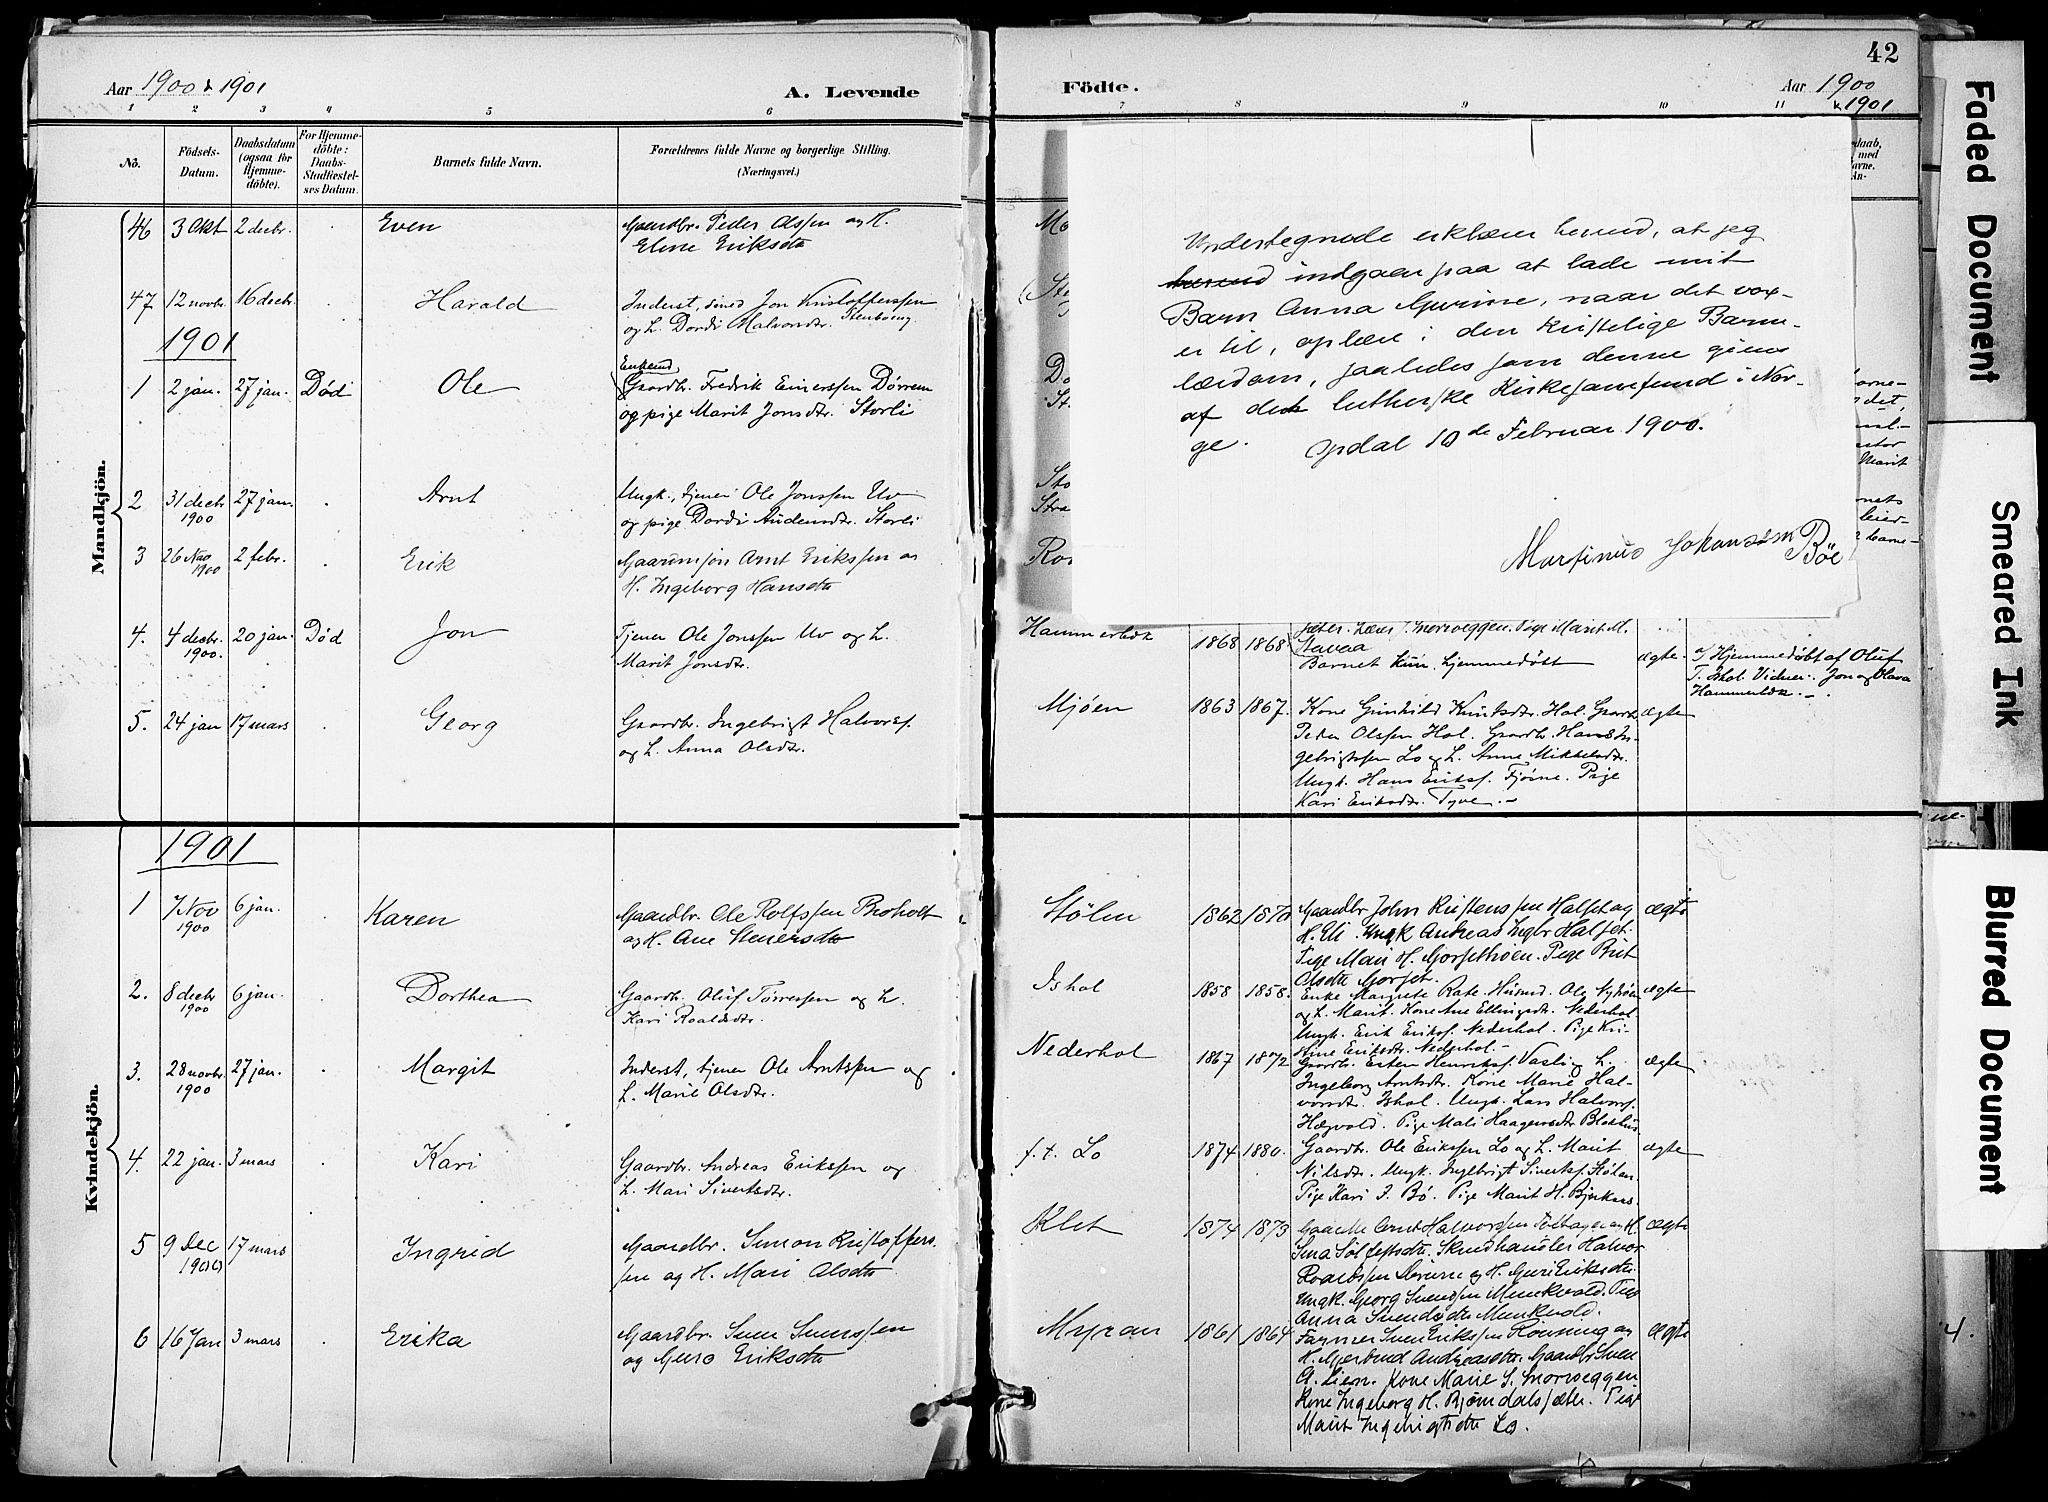 Aar 1900 & 1901
A. Levende
1 2 3 4 5 6
No.
Födsels-
Datum.
Daabsdatum
(ogsaa for
Hjemme-
döbte).
For Hjemme-
döbte:
Daabs-
Stadfæstel-
ses Datum.
Barnets fulde Navn.
Forældrenes fulde Navne og borgerlige Stilling.
(Næringsvei.)
Mandkjön.
46 3 Okt 2 decbr. Even Gaardbr. Peder Olssen og H.
Eline Eriksdtr
47 12 novbr. 16 decbr. Harald Inderst, smed Jon Kristofferssen
og h. Dordi Halvorsdtr. Stenboeng
1901
1 2 jan. 27 jan. Död Ole Enkemd
Gaardbr. Fredrik Einerssen Dörrem
og pige Marit Jonsdtr. Storli
2 31 decbr 1900 27 jan. Arnt Ungk., tjener Ole Jonssen Uv
og pige Dordi Audensdtr. Storli
3 26 Nov 1900 2 febr. Erik Gaardmsön Arnt Erikssen og
H. Ingeborg Hansdtr
4. 4 decbr. 1900. 20 jan. Död Jon Tjener Ole Jonssen Uv og h.
Marit Jonsdtr.
5. 24 jan 17 mars Georg Gaardbr. Ingebrigt Halvorss.
og h. Anna Olsdtr.
Kvindekjön.
1901
1 7 Nov 1900 6 jan. Karen Gaardbr. Ole Rolfssen Broholt
og H. Ane Stenersdtr
2. 8 decbr 1900 6 jan. Dorthea Gaardb. Oluf Törressen og h.
Kari Roaldsdtr.
3. 28 novbr. 1900 27 jan. Margit Inderst, tjener Ole Arntssen og
h. Marit Olsdtr.
4. 22 jan. 3 mars Kari Gaardbr. Andreas Erikssen og
h. Mari Sivertsdtr.
5 9 Dec 1900 17 mars Ingrid Gaardbr. Simon Kristoffers-
sen og H. Mari Olsdtr
6 16 Jan 3 mars Erika Gaardbr. Sven Svenssen
og Guro Eriksdtr
42
Födte.
Aar 1900
& 1901
7 8 9 10 11
Undertegnede erklærer herved, at jeg
herved indgaar paa at lade mit
Barn Anna Gurine, naar det vox-
er til, oplære i den kristelige Barne-
lærdom, saaledes som denne gives
af den lutherske Kirkesamfund i Nor-
ge.
Opdal 10de Februar 1900.
Martinus Johansen Böe
Hammerbæk 1868 1868
Stavaa
Barnet kun hjemmedöbt ægte.
Hjemmedöbt af Oluf
T. Ishol. Vidner: Jon og Olava
Hammerbæk.
Mjöen 1863 1867. Kone Gunhild Knutsdtr. Hol. Gaardb. ægte
Peder Olssen Hol. Gaardbr. Hans In-
gebrigtssen Lo og h. Anne Mikkelsdtr.
Ungk. Hans Erikss. Fjörne. Pige
Kari Eriksdtr. Tyve.
Stölen 1862 1870 Gaardbr John Kristenssen Halset og ægte
H. Eli. Ungk Andreas Ingbr Halset.
Pige Mari H. Gorsethoen. Pige Brit
Olsdtr Gorset.
Ishol 1858 1858. Enke Margrete Rate. Husmd. Ole Nyhöen ægte
og h. Marit. Kone Ane Ellingsdtr. Nederhol
Ungk. Erik Erikss. Nederhol. Pige Kri-
stine Eriksdtr. Nederhol.
Nederhol 1867 1872 Gaardb. Esten Henrikss. Vasli og h. ægte
Ingeborg Arntsdtr. Kone Marie Hal-
vorsdtr. Ishol. Ungk. Lars Halvorss.
Hægvold. Pige Mali Haagensdtr Blokhus
f.t. Lo 1874 1880. Gaardbr. Ole Erikssen Lo og h. Marit ægte
Nilsdtr. Ungk. Ingebrigt Sivertss. Stölan.
Pige Kari J. Bö. Pige Marit H. Bjerkaas.
Klet 1874 1873 Gaardbr Arnt Halvorssen og H. ægte
Halvor
og H. Guri Eriksdtr.
Ungk. Georg Svendsen Munkvold. Pige
Anna Svendsdtr Munkvold.
Myran 1861 1864 Farmer Sven Erikssen Rönning og ægte
H. Gjertrud Andreasdtr. Gaardbr Sven
A. Lien. Kone Marie S. Snorveggen
Kone Ingeborg H. Björndalssæter. Pige
Marit Ingebrigtsdtr Lo.
Faded Document
Smeared Ink
Blurred Document